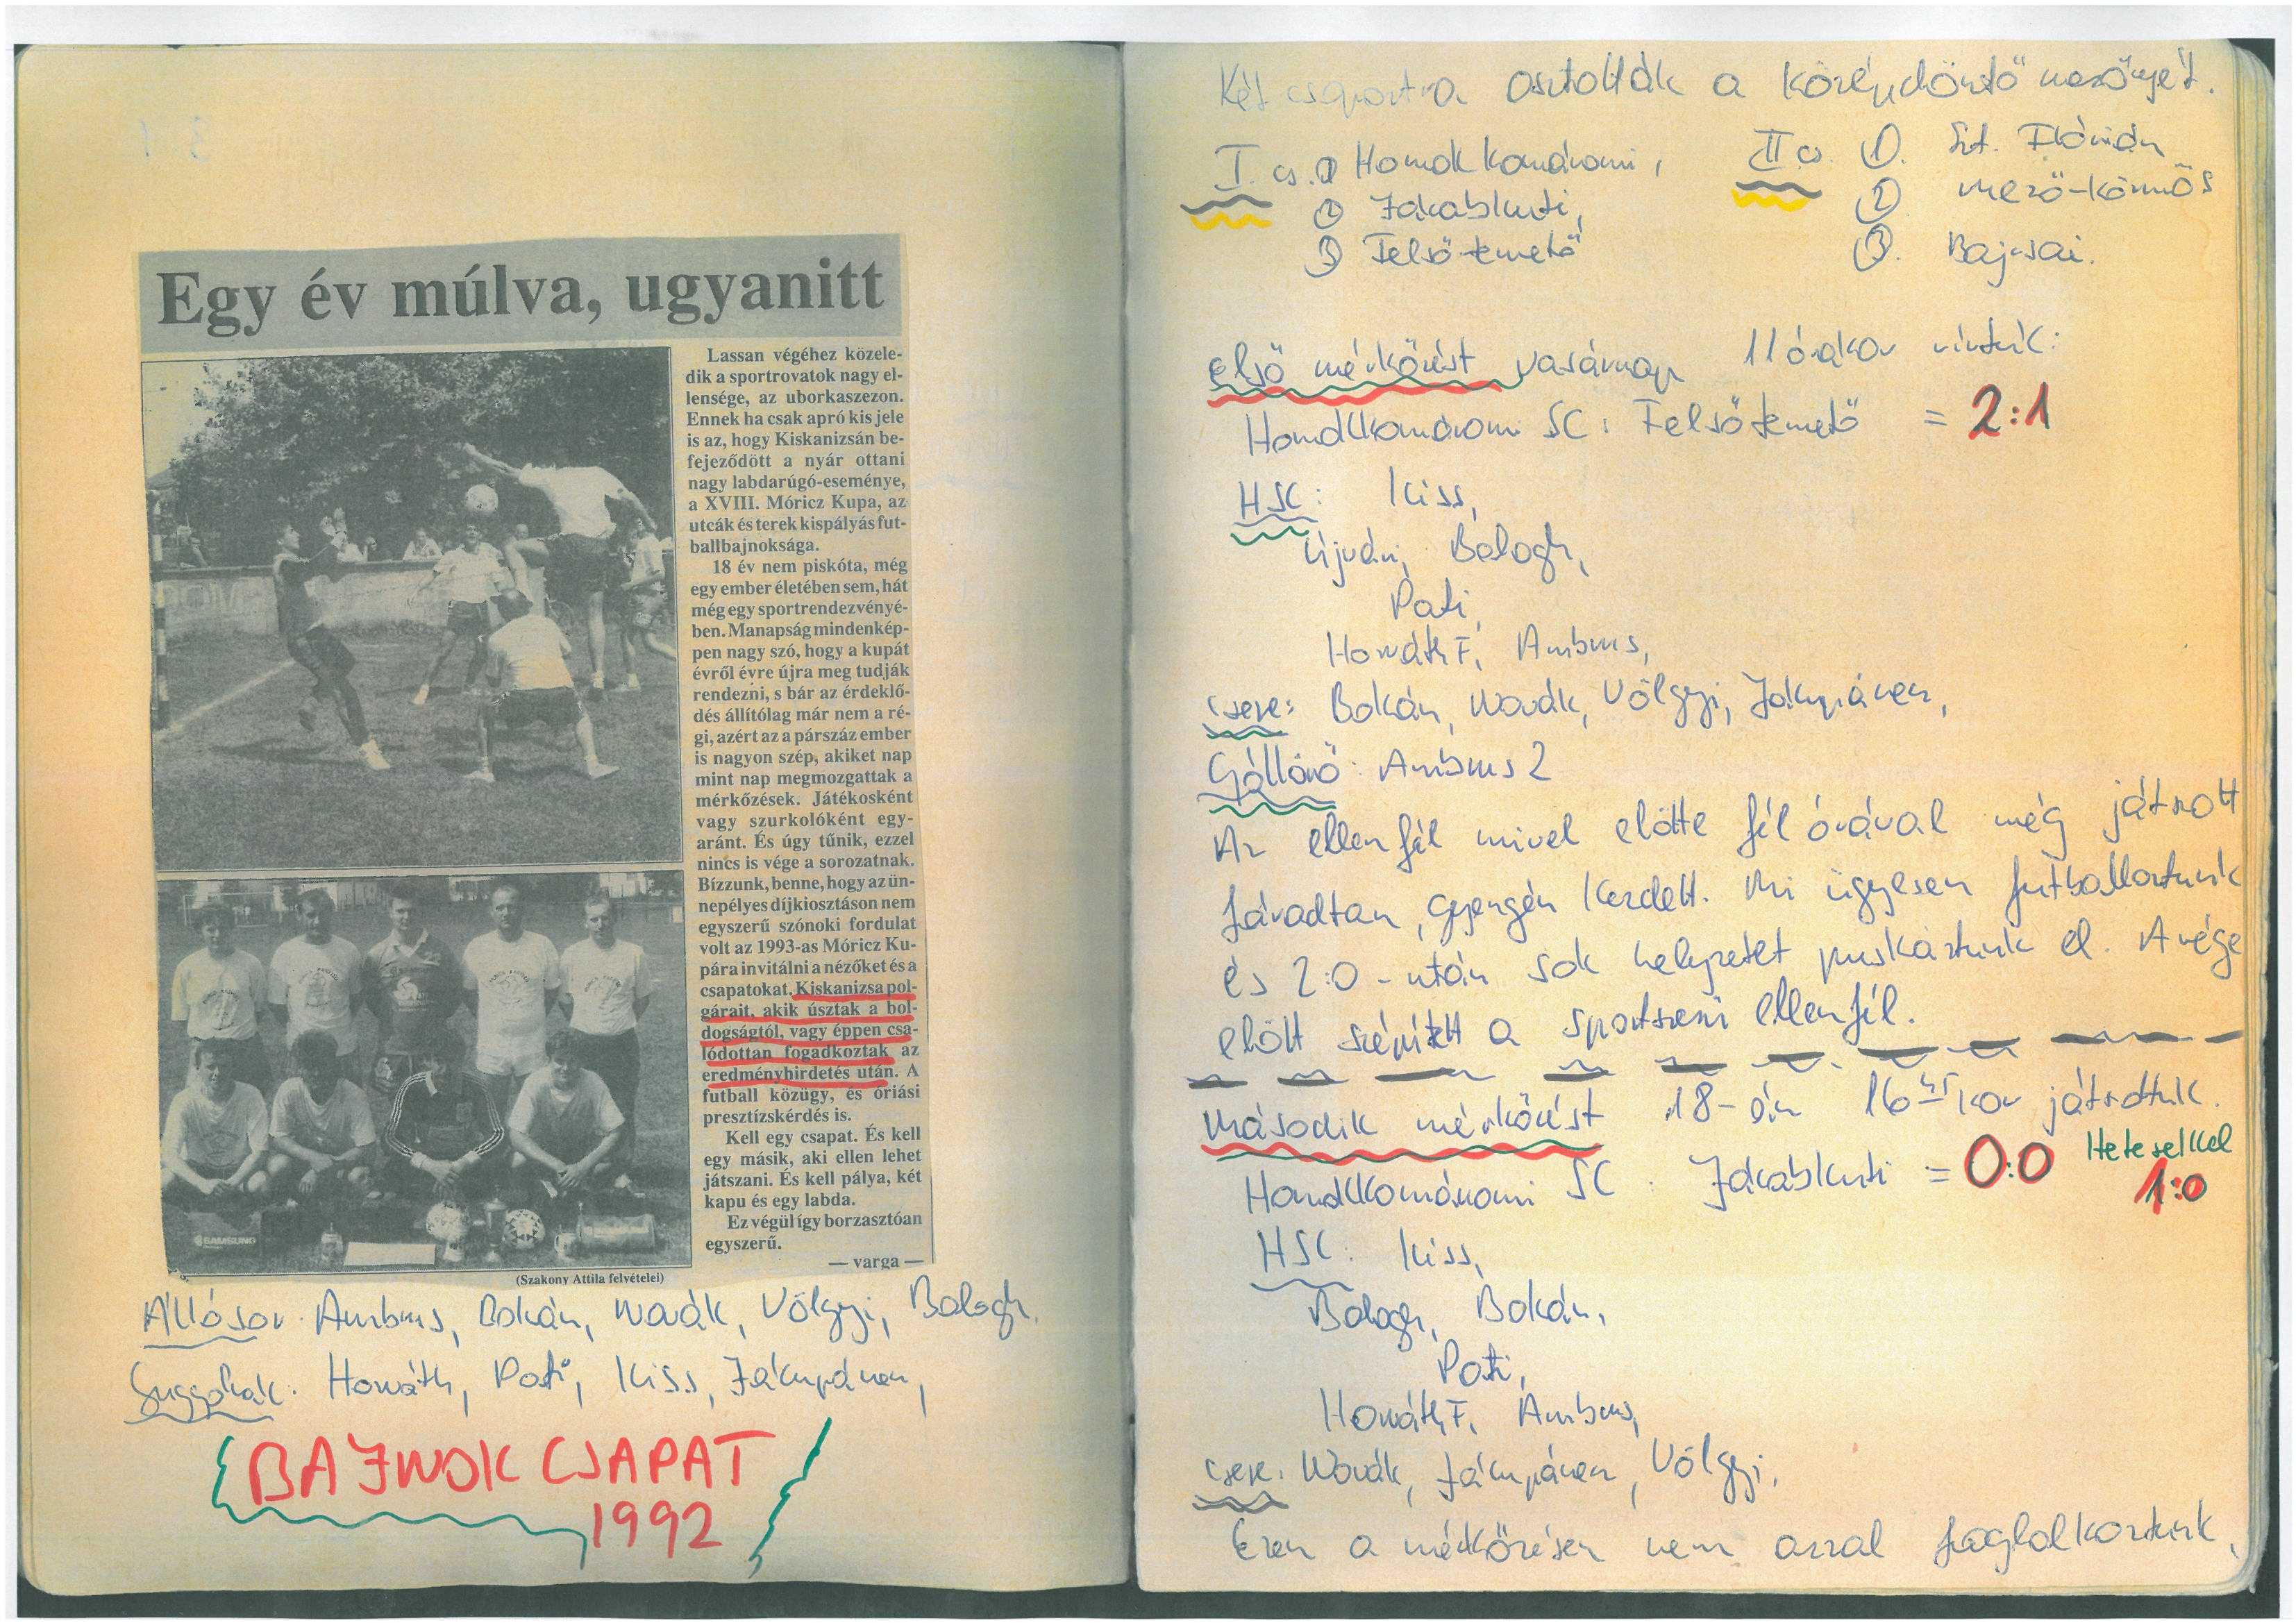 Egy év múlva, ugyanitt
Lassan végéhez közele-
dik a sportrovatok nagy el-
lensége, az uborkaszezon.
Ennek ha csak apró kis jele
is az, hogy Kiskanizsán be-
fejeződött a nyár ottani
nagy labdarúgó-eseménye,
a XVIII. Móricz Kupa, az
utcák és terek kispályás fut-
ballbajnoksága.
18 év nem piskóta, még
egy ember életében sem, hát
még egy sportrendezvényé-
ben. Manapság mindenkép-
pen nagy szó, hogy a kupát
évről évre újra meg tudják
rendezni, s bár az érdeklő-
dés állítólag már nem a ré-
gi, azért az a párszáz ember
is nagyon szép, akiket nap
mint nap megmozgattak a
mérkőzések. Játékosként
vagy szurkolóként egy-
aránt. És úgy tűnik, ezzel
nincs is vége a sorozatnak.
Bízzunk, benne, hogy az ün-
nepélyes díjkiosztáson nem
egyszerű szónoki fordulat
volt az 1993-as Móricz Ku-
pára invitálni a nézőket és a
csapatokat. Kiskanizsa pol-
gárait, akik úsztak a bol-
dogságtól, vagy éppen csa-
lódottan fogadkoztak az
eredményhirdetés után. A
futball közügy, és óriási
presztízskérdés is.
Kell egy csapat. És kell
egy másik, aki ellen lehet
játszani. És kell pálya, két
kapu és egy labda.
Ez végül így borzasztóan
egyszerű.
— varga —
SAMSUNG
(Szakony Attila felvételei)
Állósor: Ambrus, Bokán, Novák, Völgyi, Balogh,
Guggolnak: Horváth, Pati, Kiss, Zákupánen,
BAJNOK CSAPAT
1992
Két csoportra osztották a középdöntő mezőnyét.
I. cs. 1 Homokkomáromi,
2 Jakabkuti,
3 Felsőtemető
II cs. 1. Szt. Flórián
2 Mező-körmös
3. Bajcsai.
Első mérkőzést vasárnap 11 órakor vívtuk:
Homokkomáromi SC : Felsőtemető = 2:1
HSC: Kiss,
Újvári, Balogh,
Pati,
Horváth F, Ambrus,
csere: Bokán, Novák, Völgyi,
Góllövő: Ambrus 2
Az ellenfél mivel előtte fél órával még játszott
fáradtan, gyengén kezdett. Mi ügyesen futballoztunk
és 2:0-után sok helyzetet puskáztunk el. A vége
előtt szépített a sportszerű ellenfél.
Második mérkőzést 18-án 16 45 kor játszottuk.
Homokkomáromi SC : Jakabkuti = 0:0 Hetesekkel
1:0
HSC: Kiss,
Balogh, Bokán,
Pati,
Horváth F, Ambrus,
csere: Novák, Völgyi,
Ezen a mérkőzésen nem azzal foglalkoztunk,